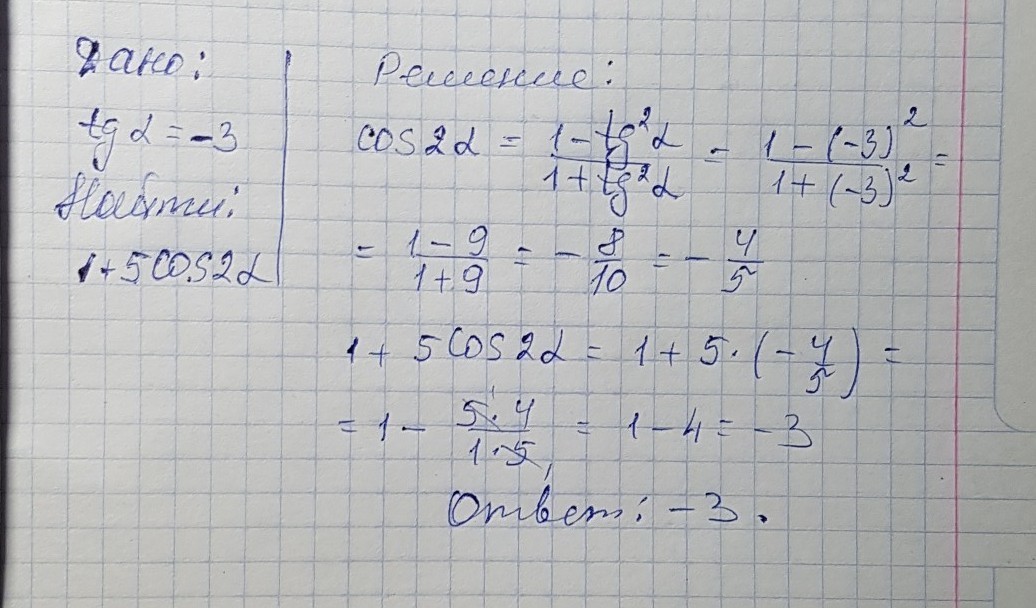 Дано:
tg α = -3
Найти:
1+5cos2α
Решение:
cos2α = (1 - tg²α)/(1 + tg²α) = (1 - (-3)²)/(1 + (-3)²) =
= (1 - 9)/(1 + 9) = - 8/10 = - 4/5
1 + 5cos2α = 1 + 5·(- 4/5) =
= 1 - (5·4)/(1·5) = 1 - 4 = -3
Ответ: -3.